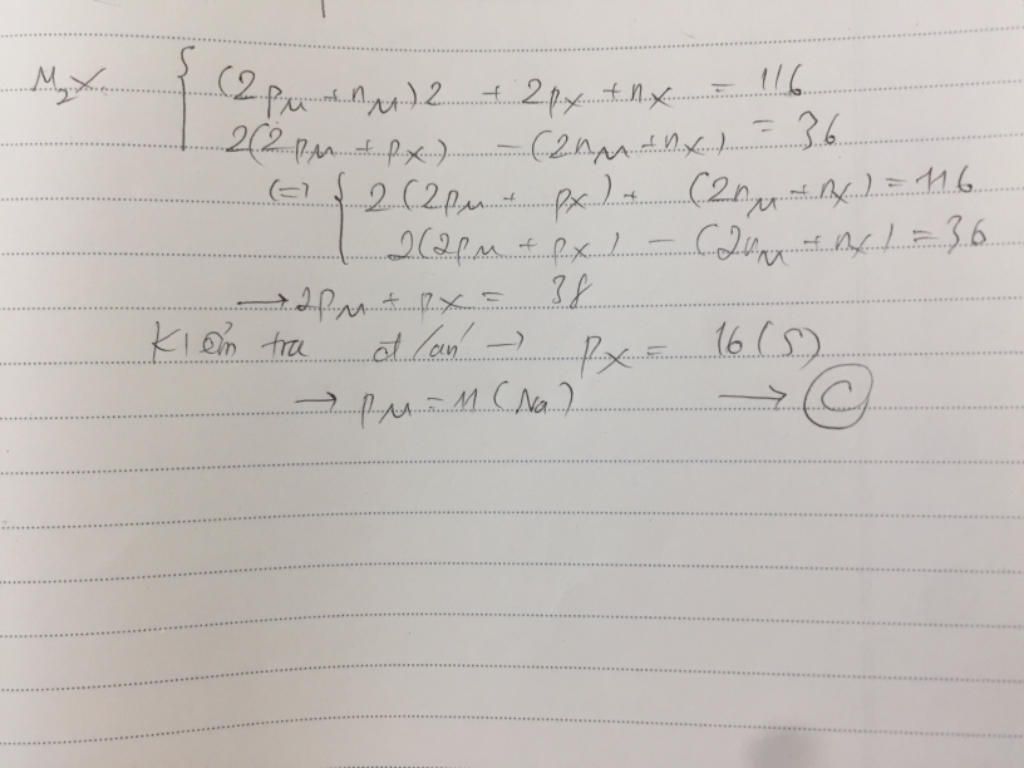 M₂X. { (2pM + nM)2 + 2pX + nX = 116
2(2pM + pX) - (2nM + nX) = 36
(=) { 2(2pM + pX) + (2nM + nX) = 116
2(2pM + pX) - (2nM + nX) = 36
→ 2pM + pX = 38
Kiểm tra đ/án → pX = 16 (S)
→ pM = 11 (Na) → C